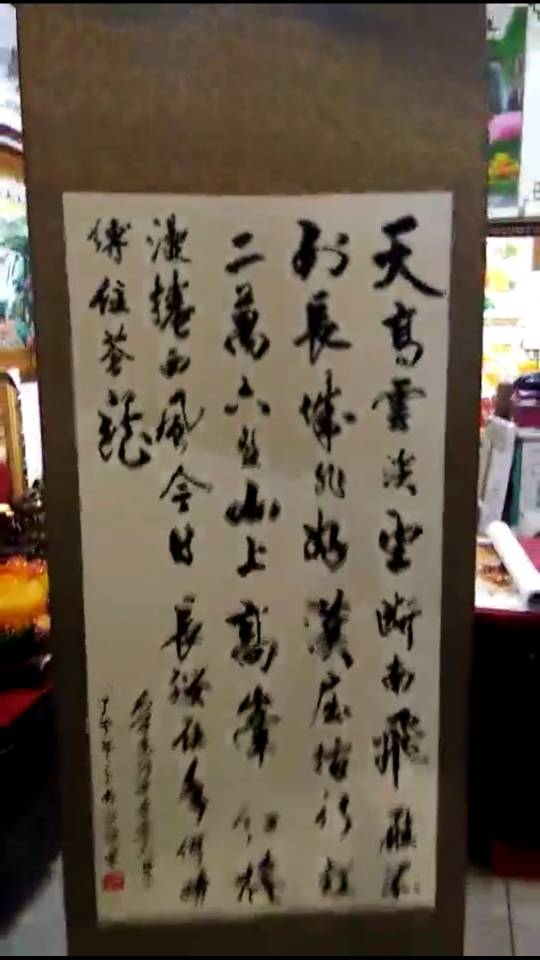 天高雲淡望断南飛雁不
到長城非好漢屈指行程
二萬六盤山上高峯紅旗
漫捲西風今日長纓在手何時
縛住蒼龍